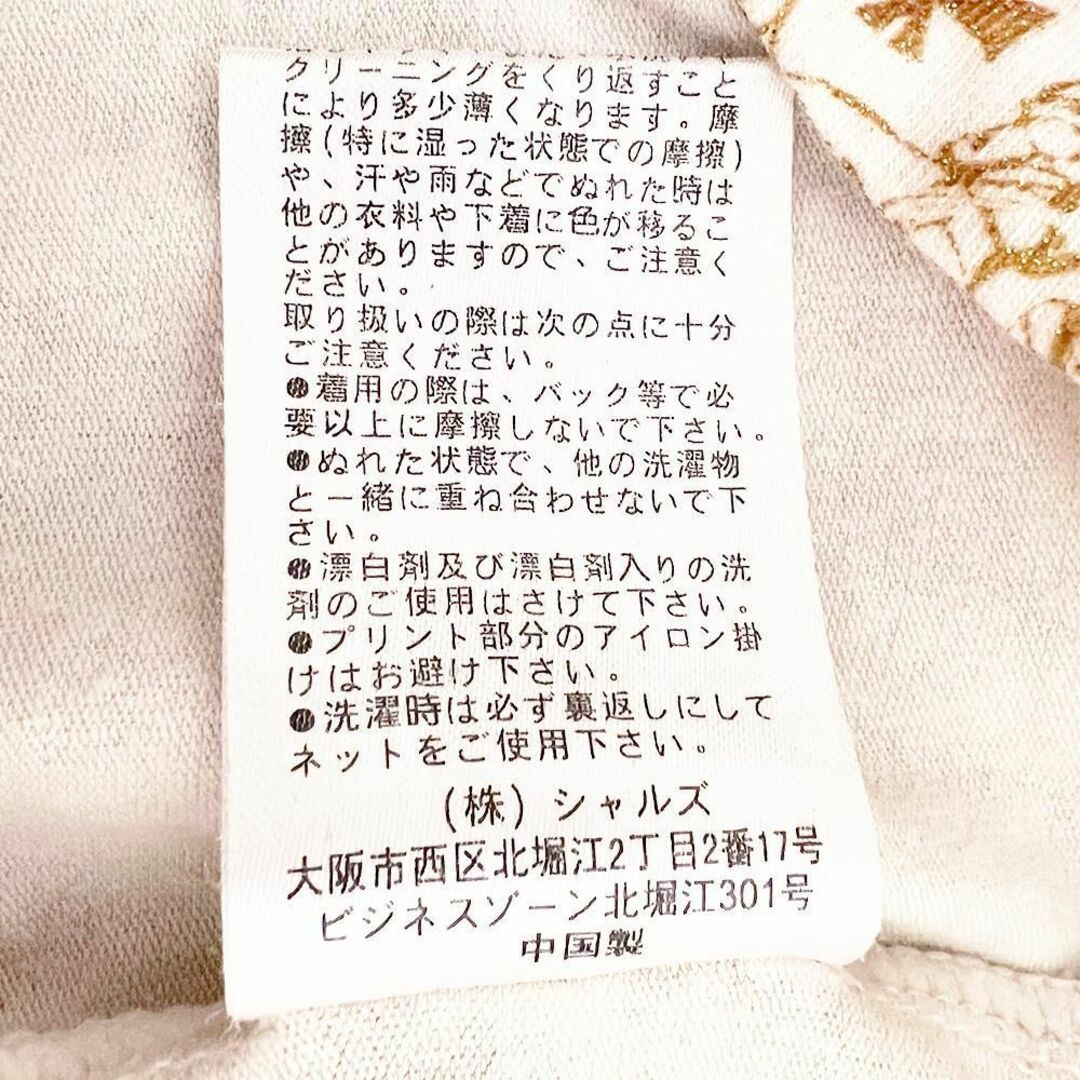 クリーニングをくり返すこと
により多少薄くなります。摩
擦(特に湿った状態での摩擦)
や、汗や雨などでぬれた時は
他の衣料や下着に色が移るこ
とがありますので、ご注意く
ださい。
取り扱いの際は次の点に十分
ご注意ください。
●着用の際は、バック等で必
要以上に摩擦しないで下さい。
●ぬれた状態で、他の洗濯物
と一緒に重ね合わせないで下
さい。
●漂白剤及び漂白剤入りの洗
剤のご使用はさけて下さい。
●プリント部分のアイロン掛
けはお避け下さい。
●洗濯時は必ず裏返しにして
ネットをご使用下さい。
(株)シャルズ
大阪市西区北堀江2丁目2番17号
ビジネスゾーン北堀江301号
中国製